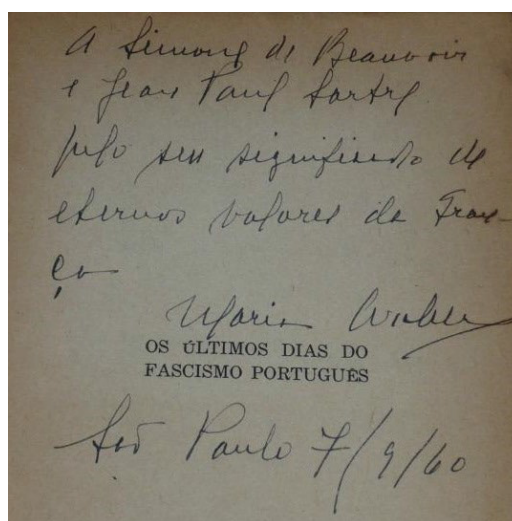 A Simone de Beauvoir
e Jean Paul Sartre
pelo seu significado de
eternos valores da Fran-
ça
Maria Archer
OS ÚLTIMOS DIAS DO
FASCISMO PORTUGUÊS
São Paulo 7/9/60